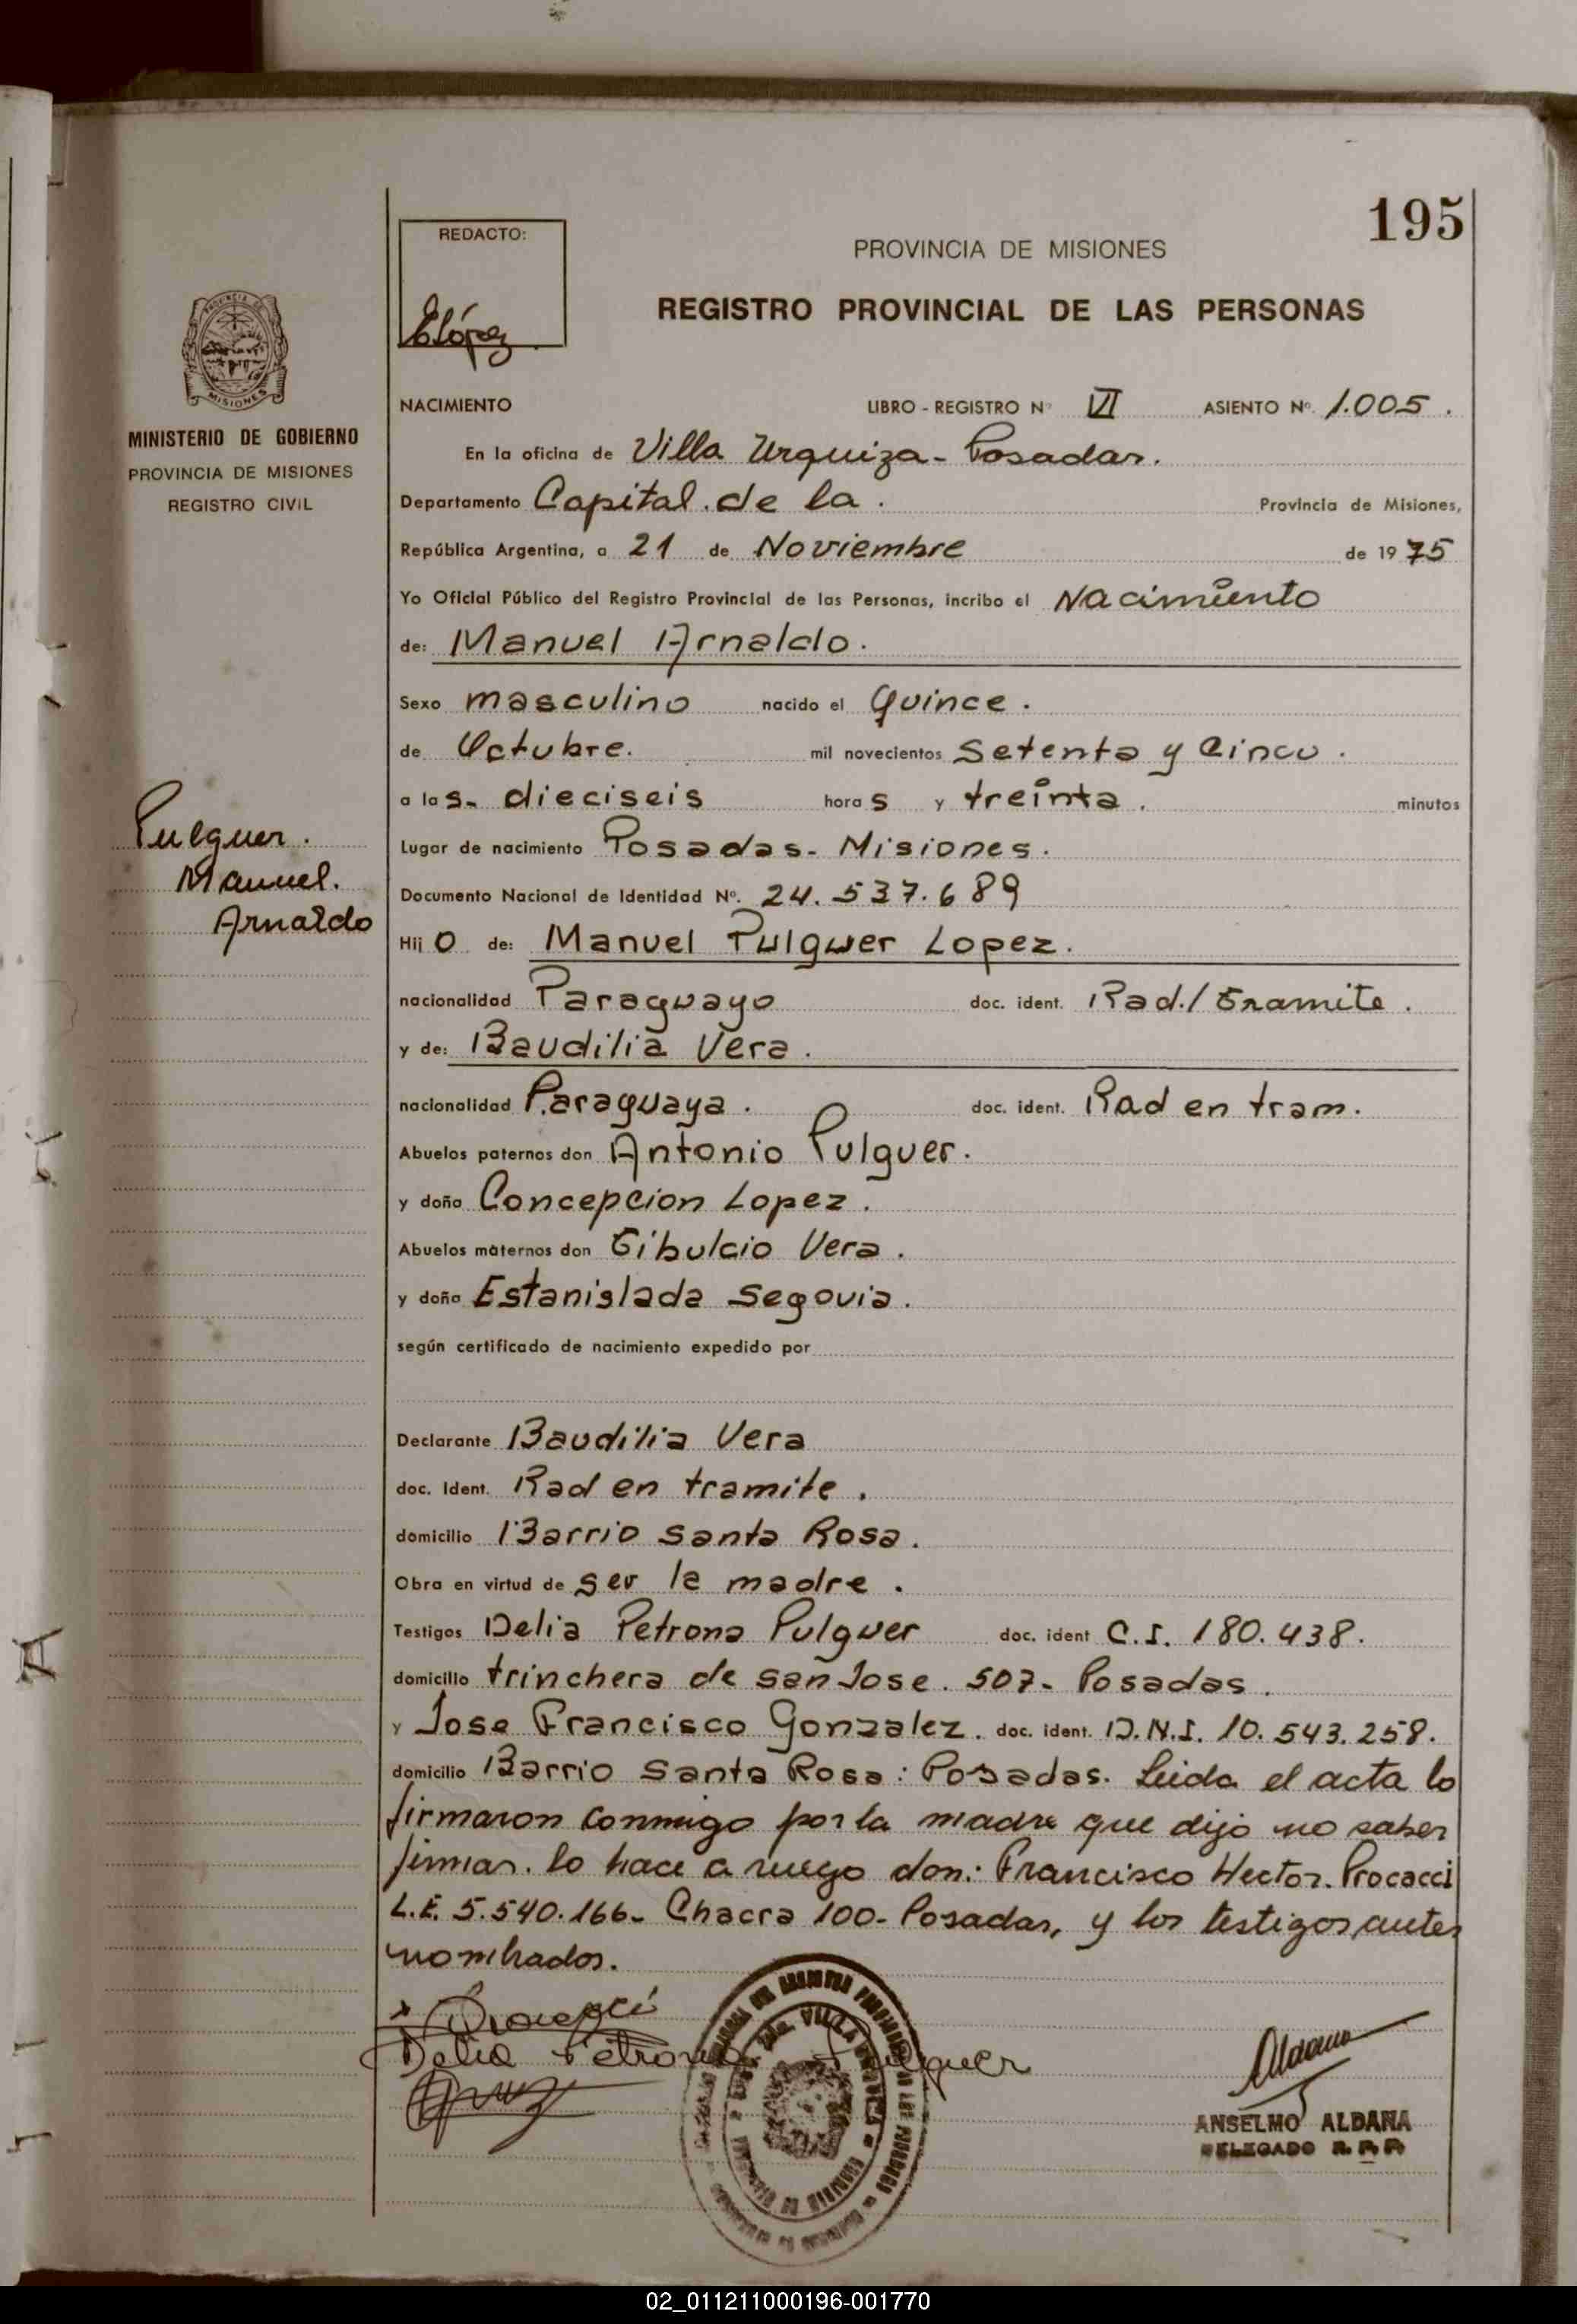 195
REDACTO:
ELópez
PROVINCIA DE MISIONES
REGISTRO PROVINCIAL DE LAS PERSONAS
MISIONES
MINISTERIO DE GOBIERNO
PROVINCIA DE MISIONES
REGISTRO CIVIL
NACIMIENTO LIBRO - REGISTRO Nº VI ASIENTO Nº 1.005.
En la oficina de Villa Urquiza - Posadas.
Departamento Capital. de la. Provincia de Misiones,
República Argentina, a 21 de Noviembre de 1975
Yo Oficial Público del Registro Provincial de las Personas, incribo el Nacimiento
de: Manuel Arnaldo.
Sexo masculino nacido el Quince.
de Octubre. mil novecientos Setenta y Cinco.
a las- dieciseis horas y treinta. minutos
Pulguer.
Manuel.
Arnaldo
Lugar de nacimiento Posadas- Misiones.
Documento Nacional de Identidad Nº. 24.537.689
Hijo de: Manuel Pulguer Lopez.
nacionalidad Paraguayo doc. ident. Rad./tramite.
y de: Baudilia Vera.
nacionalidad Paraguaya. doc. ident. Rad en tram.
Abuelos paternos don Antonio Pulguer.
y doña Concepcion Lopez.
Abuelos maternos don Tibulcio Vera.
y doña Estanislada Segovia.
según certificado de nacimiento expedido por
Declarante Baudilia Vera
doc. Ident. Rad en tramite.
domicilio Barrio Santa Rosa.
Obra en virtud de ser la madre.
Testigos Delia Petrona Pulguer doc. ident C.I. 180.438.
domicilio trinchera de San Jose. 507- Posadas.
y Jose Francisco Gonzalez. doc. ident. D.N.I. 10.543.258.
domicilio Barrio Santa Rosa: Posadas. Leida el acta lo
firmaron conmigo por la madre que dijo no saber
firmar. lo hace a ruego don: Francisco Hector. Procacci
L.E. 5.540.166- Chacra 100- Posadas, y los testigos antes
nombrados.
Procacci
Delia Petrona Pulguer
Aldana
ANSELMO ALDANA
DELEGADO R. P. P.
02_011211000196-001770